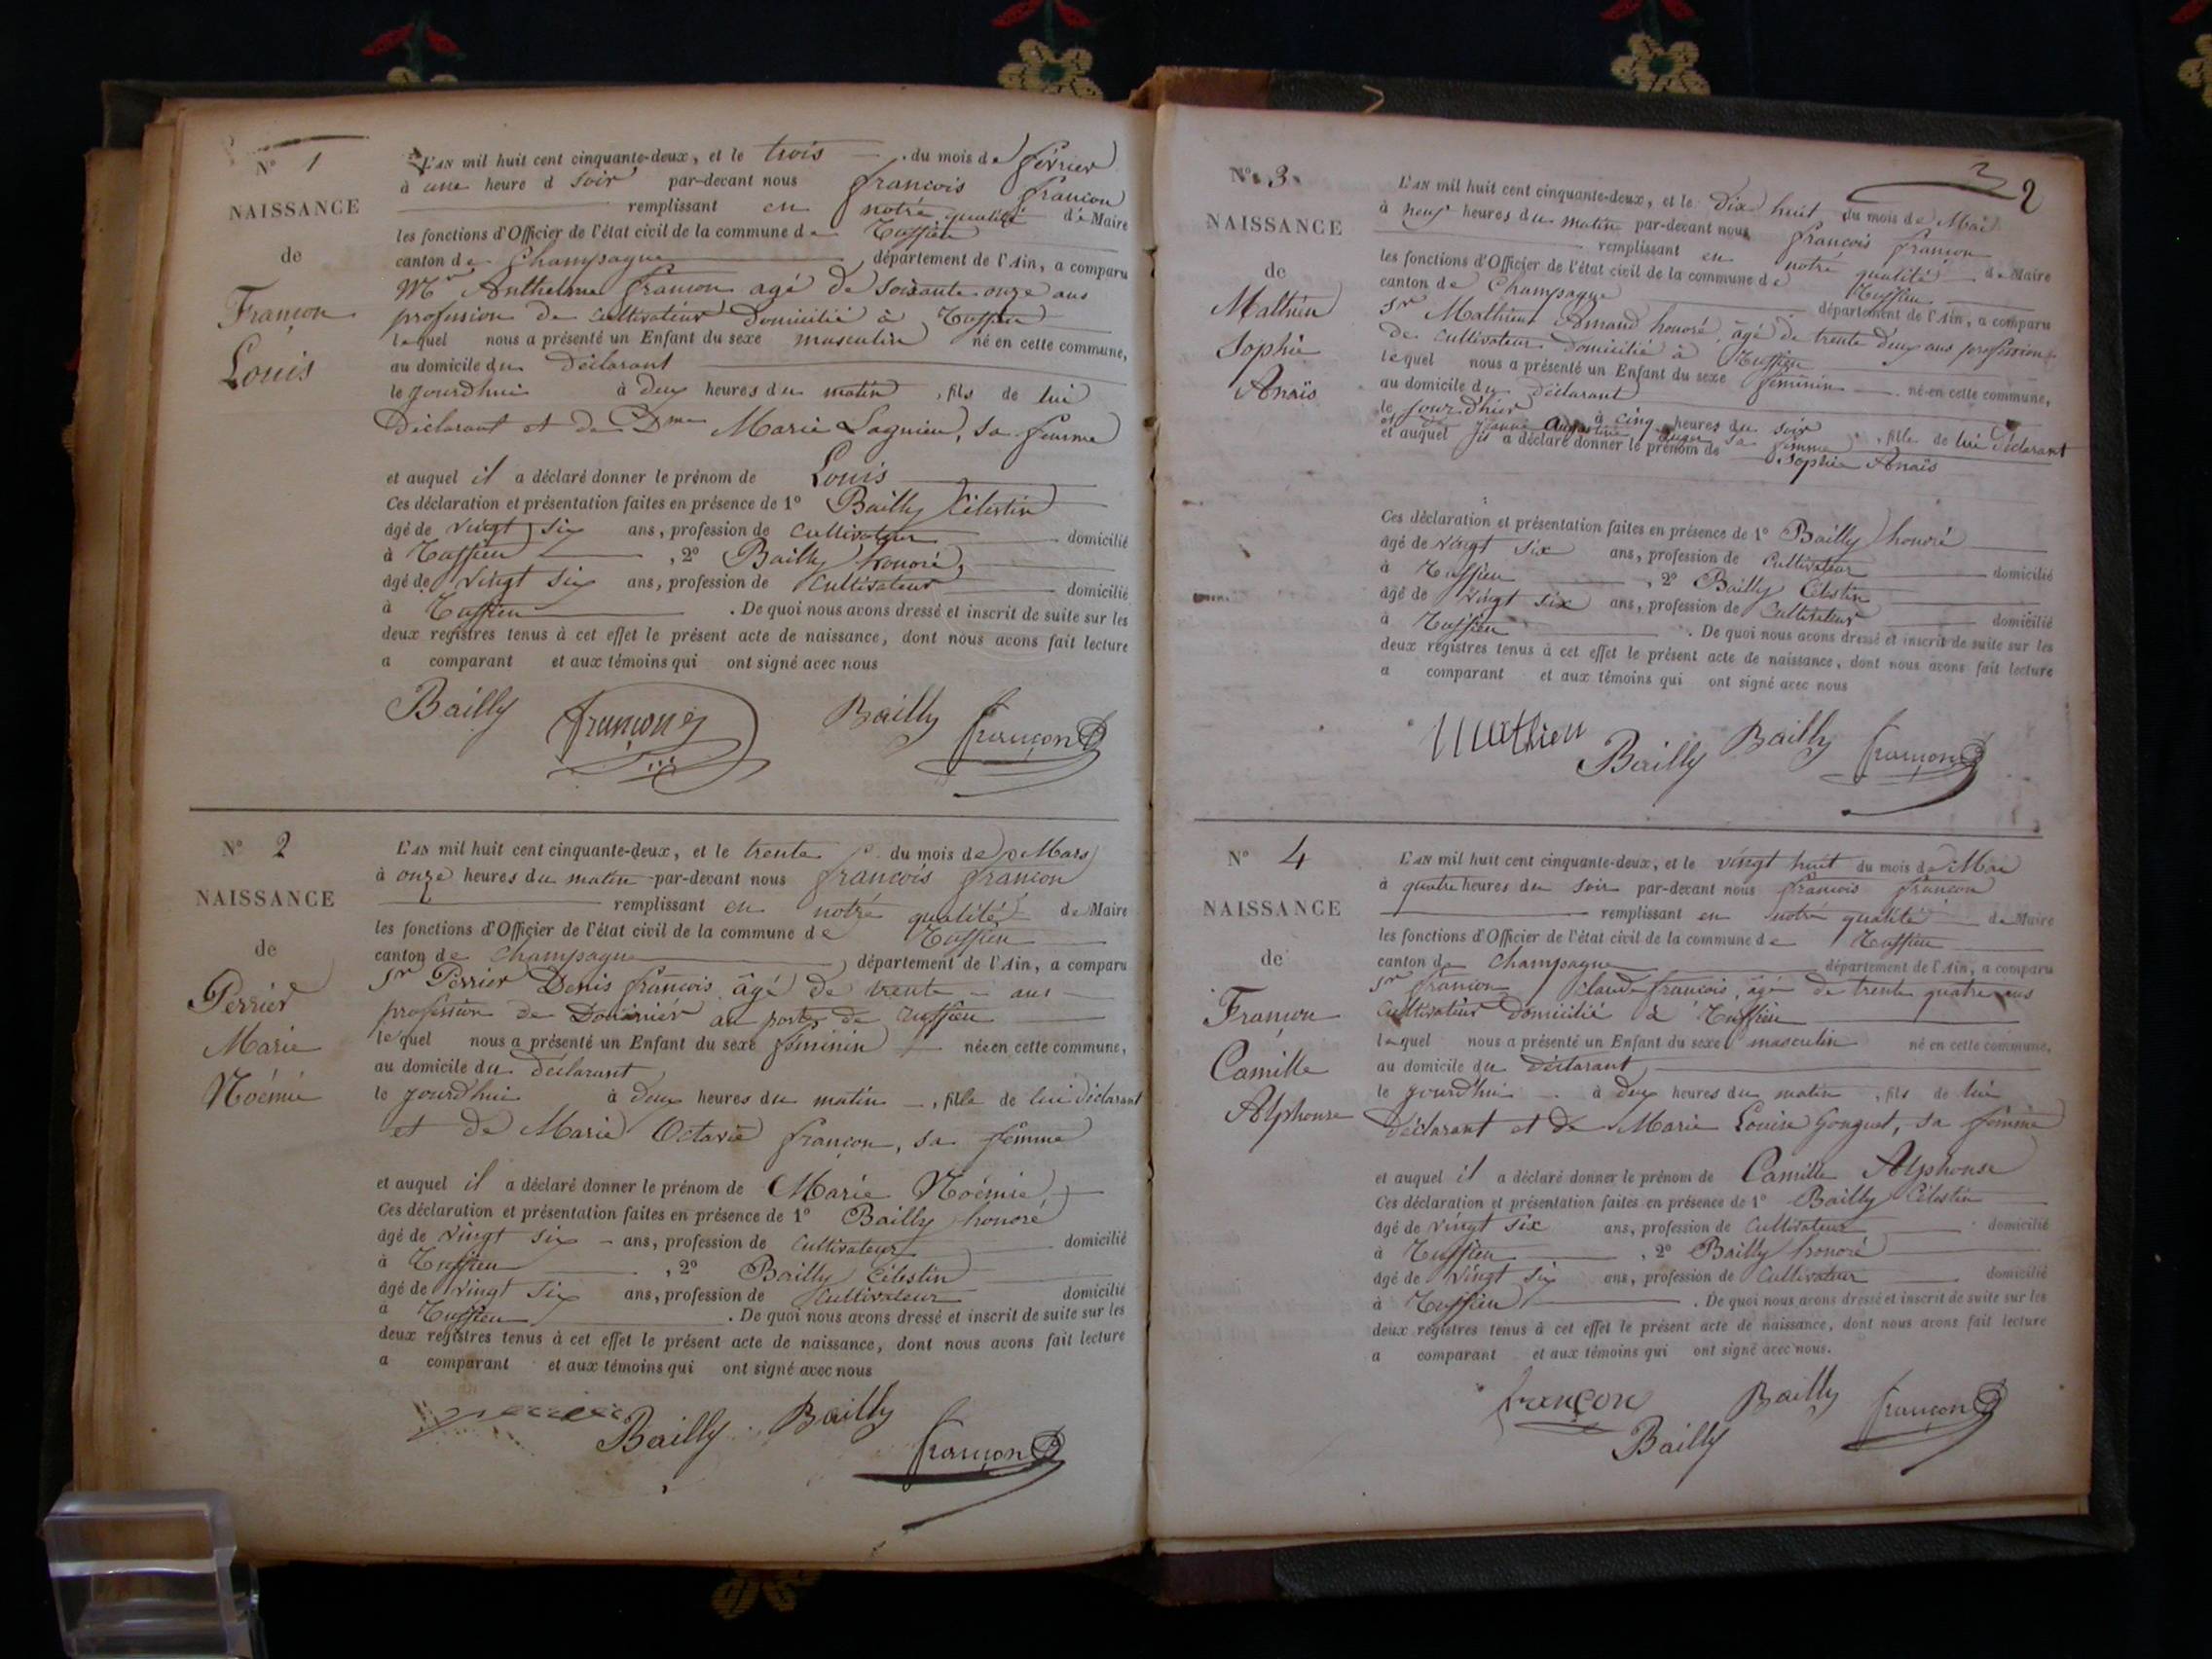 N° 1
NAISSANCE
de
Françon
Louis
L'AN mil huit cent cinquante-deux, et le trois du mois de février
à une heure d soir par-devant nous françois françon
remplissant en notre qualité de Maire
les fonctions d'Officier de l'état civil de la commune de
canton de Champagne département de l'Ain, a comparu
Mr Anthelme françon agé de soixante onze ans
profession de cultivateur domicilié à
lequel nous a présenté un Enfant du sexe masculin né en cette commune,
au domicile du déclarant
le jourdhui à deux heures du matin, fils de lui
déclarant et de Dme Marie Lagnieu, sa femme
et auquel il a déclaré donner le prénom de Louis
Ces déclaration et présentation faites en présence de 1° Bailly Célestin
âgé de vingt six ans, profession de cultivateur domicilié
à , 2° Bailly honoré,
âgé de vingt six ans, profession de cultivateur domicilié
à . De quoi nous avons dressé et inscrit de suite sur les
deux registres tenus à cet effet le présent acte de naissance, dont nous avons fait lecture
a comparant et aux témoins qui ont signé avec nous
Bailly françon Bailly françon
N° 2
NAISSANCE
de
Perrier
Marie
Noémie
L'AN mil huit cent cinquante-deux, et le trente du mois de Mars
à onze heures du matin par-devant nous françois françon
remplissant en notre qualité de Maire
les fonctions d'Officier de l'état civil de la commune de
canton de Champagne département de l'Ain, a comparu
Sr Perrier Denis françois âgé de trente ans
profession de Douanier au poste de
lequel nous a présenté un Enfant du sexe féminin née en cette commune,
au domicile du déclarant
le jourdhui à deux heures du matin, fille de lui déclarant
et de Marie Octavie françon, sa femme
et auquel il a déclaré donner le prénom de Marie Noémie,
Ces déclaration et présentation faites en présence de 1° Bailly honoré
âgé de vingt six ans, profession de cultivateur domicilié
à , 2° Bailly Célestin
âgé de vingt six ans, profession de cultivateur domicilié
à . De quoi nous avons dressé et inscrit de suite sur les
deux registres tenus à cet effet le présent acte de naissance, dont nous avons fait lecture
a comparant et aux témoins qui ont signé avec nous
Bailly Bailly françon
2
N° 3
NAISSANCE
de
Mathieu
Sophie
Anaïs
L'AN mil huit cent cinquante-deux, et le Dix huit du mois de Mai
à neuf heures du matin par-devant nous françois françon
remplissant en notre qualité de Maire
les fonctions d'Officier de l'état civil de la commune de
canton de Champagne département de l'Ain, a comparu
Sr Mathieu Armand honoré, âgé de trente deux ans profession
de cultivateur domicilié à
lequel nous a présenté un Enfant du sexe féminin né en cette commune,
au domicile du déclarant
le jour d'hier à cinq heures du soir, fille de lui déclarant
et de Jeanne Augustine sa femme
et auquel il a déclaré donner le prénom de Sophie Anaïs
Ces déclaration et présentation faites en présence de 1° Bailly honoré
âgé de vingt six ans, profession de cultivateur domicilié
à , 2° Bailly Célestin
âgé de vingt six ans, profession de cultivateur domicilié
à . De quoi nous avons dressé et inscrit de suite sur les
deux registres tenus à cet effet le présent acte de naissance, dont nous avons fait lecture
a comparant et aux témoins qui ont signé avec nous
Mathieu Bailly Bailly françon
N° 4
NAISSANCE
de
Françon
Camille
Alphonse
L'AN mil huit cent cinquante-deux, et le vingt huit du mois de Mai
à quatre heures du soir par-devant nous françois françon
remplissant en notre qualité de Maire
les fonctions d'Officier de l'état civil de la commune de
canton de Champagne département de l'Ain, a comparu
Sr françon Claude françois, âgé de trente quatre ans
cultivateur domicilié à
lequel nous a présenté un Enfant du sexe masculin né en cette commune,
au domicile du déclarant
le jourdhui à deux heures du matin, fils de lui
déclarant et de Marie Louise Gonguet, sa femme
et auquel il a déclaré donner le prénom de Camille Alphonse
Ces déclaration et présentation faites en présence de 1° Bailly Célestin
âgé de vingt six ans, profession de cultivateur domicilié
à , 2° Bailly honoré
âgé de vingt six ans, profession de cultivateur domicilié
à . De quoi nous avons dressé et inscrit de suite sur les
deux registres tenus à cet effet le présent acte de naissance, dont nous avons fait lecture
a comparant et aux témoins qui ont signé avec nous.
françon Bailly Bailly françon